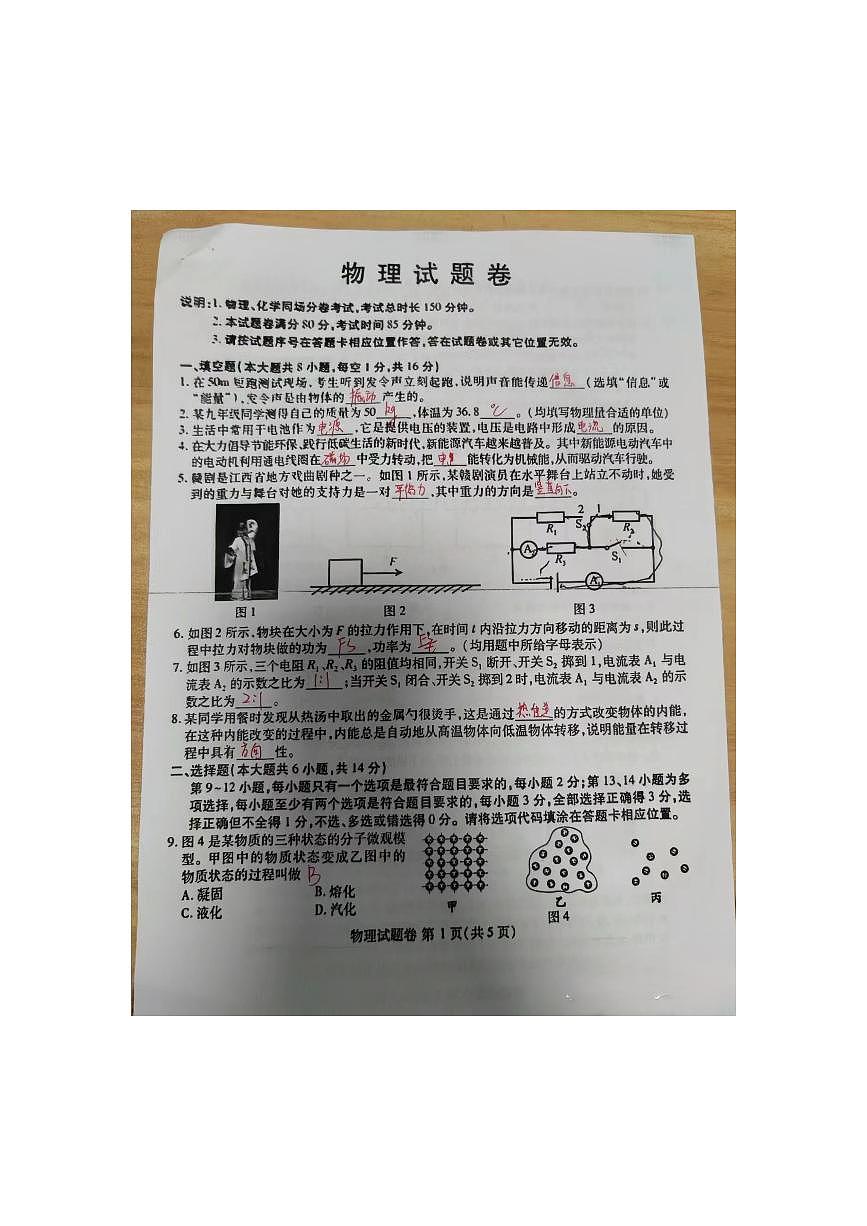 物理试题卷
说明:1. 物理、化学同场分卷考试,考试总时长 150 分钟。
2. 本试题卷满分 80 分,考试时间 85 分钟。
3. 请按试题序号在答题卡相应位置作答,答在试题卷或其它位置无效。
一、填空题(本大题共 8 小题,每空 1 分,共 16 分)
1. 在 50m 短跑测试现场,考生听到发令声立刻起跑,说明声音能传递信息(选填“信息”或
“能量”),发令声是由物体的振动产生的。
2. 某九年级同学测得自己的质量为 50 kg ,体温为 36.8 ℃ 。(均填写物理量合适的单位)
3. 生活中常用干电池作为电源,它是提供电压的装置,电压是电路中形成电流的原因。
4. 在大力倡导节能环保、践行低碳生活的新时代,新能源汽车越来越普及。其中新能源电动汽车中
的电动机利用通电线圈在磁场中受力转动,把电能转化为机械能,从而驱动汽车行驶。
5. 赣剧是江西省地方戏曲剧种之一。如图 1 所示,某赣剧演员在水平舞台上站立不动时,她受
到的重力与舞台对她的支持力是一对平衡力,其中重力的方向是竖直向下。
F
2 S₂ 1
R₁ R₂
A R₃ S₁
A
图 1 图 2 图 3
6. 如图 2 所示,物块在大小为 F 的拉力作用下,在时间 t 内沿拉力方向移动的距离为 s,则此过
程中拉力对物块做的功为 Fs ,功率为 。(均用题中所给字母表示)
7. 如图 3 所示,三个电阻 R₁、R₂、R₃ 的阻值均相同,开关 S₁ 断开、开关 S₂ 掷到 1,电流表 A₁ 与电
流表 A₂ 的示数之比为 1:1 ;当开关 S₁ 闭合、开关 S₂ 掷到 2 时,电流表 A₁ 与电流表 A₂ 的示
数之比为 2:1 。
8. 某同学用餐时发现从热汤中取出的金属勺很烫手,这是通过热传递的方式改变物体的内能,
在这种内能改变的过程中,内能总是自动地从高温物体向低温物体转移,说明能量在转移过
程中具有方向性。
二、选择题(本大题共 6 小题,共 14 分)
第 9~12 小题,每小题只有一个选项是最符合题目要求的,每小题 2 分;第 13、14 小题为多
项选择,每小题至少有两个选项是符合题目要求的,每小题 3 分,全部选择正确得 3 分,选
择正确但不全得 1 分,不选、多选或错选得 0 分。请将选项代码填涂在答题卡相应位置。
9. 图 4 是某物质的三种状态的分子微观模
型。甲图中的物质状态变成乙图中的
物质状态的过程叫做 B
A. 凝固 B. 熔化
C. 液化 D. 汽化
甲 乙 丙
图 4
物理试题卷 第 1 页(共 5 页)